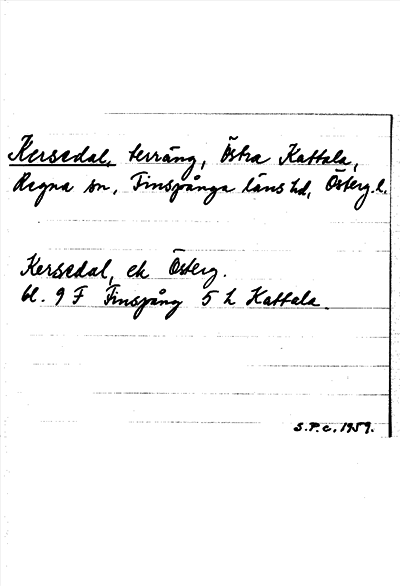 Kersedal, terräng, Östra Kattala,
Regna sn, Finspånga läns hd, Österg. l.
Kersedal, ek Österg.
bl. 9 F Finspång 5 h Kattala.
S.P.c. 1959.